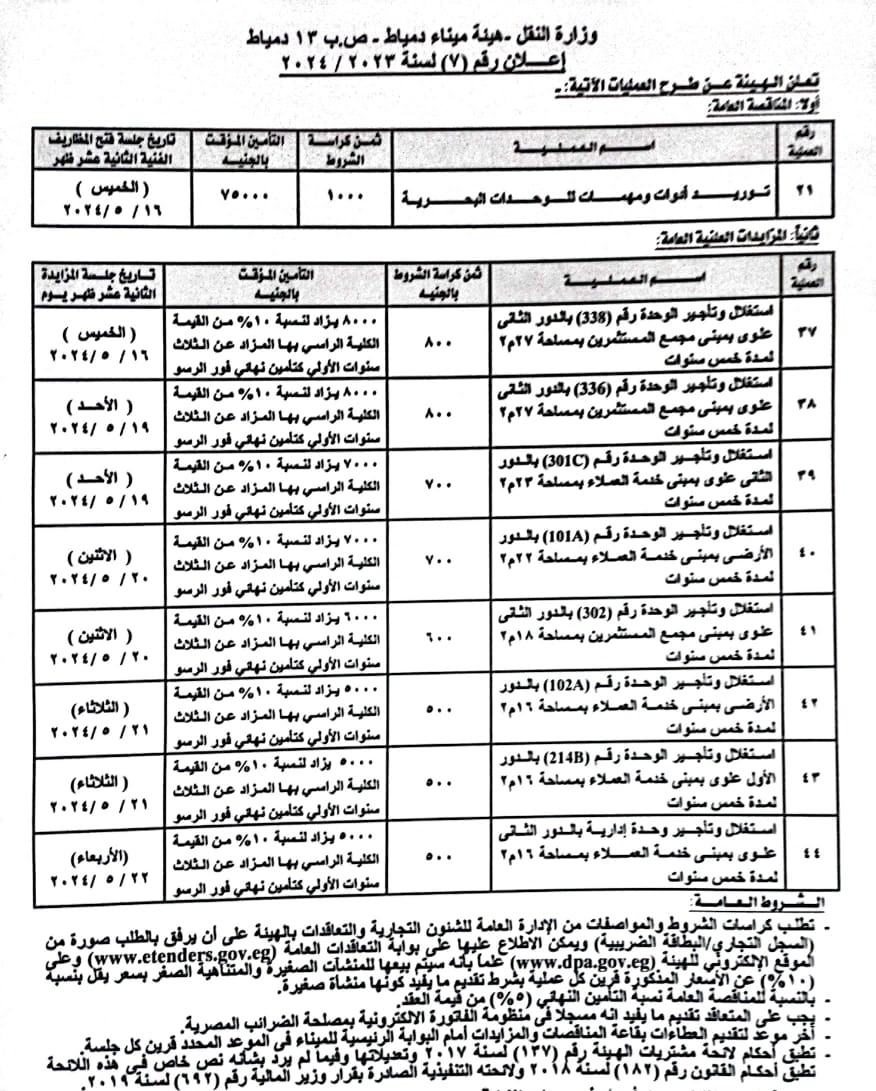 وزارة النقل - هيئة ميناء دمياط - ص.ب ١٣ دمياط
إعلان رقم (٧) لسنة ٢٠٢٣ / ٢٠٢٤
تعلن الهيئة عن طرح العمليات الآتية:ـ
أولا: المناقصة العامة:
رقم العملية
اسم العملية
ثمن كراسة الشروط
التأمين المؤقت بالجنيه
تاريخ جلسة فتح المظاريف الفنية الثانية عشر ظهر
٢١
توريد أدوات ومهمات للوحدات البحرية
١٠٠٠
٧٥٠٠٠
(الخميس)
١٦ / ٥ /٢٠٢٤
ثانياً: المزايدات العلنية العامة:
رقم العملية
اسم العملية
ثمن كراسة الشروط بالجنيه
التأمين المؤقت بالجنيه
تاريخ جلسة المزايدة الثانية عشر ظهر يوم
٣٧
استغلال وتأجير الوحدة رقم (338) بالدور الثانى
علوى بمبنى مجمع المستثمرين بمساحة ٢٧م٢
لمدة خمس سنوات
٨٠٠
٨٠٠٠ يزاد لنسبة ١٠% من القيمة
الكلية الراسي بها المزاد عن الثلاث
سنوات الأولي كتأمين نهائي فور الرسو
(الخميس)
١٦ / ٥ /٢٠٢٤
٣٨
استغلال وتأجير الوحدة رقم (336) بالدور الثانى
علوى بمبنى مجمع المستثمرين بمساحة ٢٧م٢
لمدة خمس سنوات
٨٠٠
٨٠٠٠ يزاد لنسبة ١٠% من القيمة
الكلية الراسي بها المزاد عن الثلاث
سنوات الأولي كتأمين نهائي فور الرسو
(الأحد)
١٩ / ٥ /٢٠٢٤
٣٩
استغلال وتأجير الوحدة رقم (301C) بالدور
الثانى علوى بمبنى خدمة العملاء بمساحة ٢٣م٢
لمدة خمس سنوات
٧٠٠
٧٠٠٠ يزاد لنسبة ١٠% من القيمة
الكلية الراسي بها المزاد عن الثلاث
سنوات الأولي كتأمين نهائي فور الرسو
(الأحد)
١٩ / ٥ /٢٠٢٤
٤٠
استغلال وتأجير الوحدة رقم (101A) بالدور
الأرضى بمبنى خدمة العملاء بمساحة ٢٢م٢
لمدة خمس سنوات
٧٠٠
٧٠٠٠ يزاد لنسبة ١٠% من القيمة
الكلية الراسي بها المزاد عن الثلاث
سنوات الأولي كتأمين نهائي فور الرسو
(الاثنين)
٢٠ / ٥ /٢٠٢٤
٤١
استغلال وتأجير الوحدة رقم (302) بالدور الثانى
علوى بمبنى مجمع المستثمرين بمساحة ١٨م٢
لمدة خمس سنوات
٦٠٠
٦٠٠٠ يزاد لنسبة ١٠% من القيمة
الكلية الراسي بها المزاد عن الثلاث
سنوات الأولي كتأمين نهائي فور الرسو
(الاثنين)
٢٠ / ٥ /٢٠٢٤
٤٢
استغلال وتأجير الوحدة رقم (102A) بالدور
الأرضى بمبنى خدمة العملاء بمساحة ١٦م٢
لمدة خمس سنوات
٥٠٠
٥٠٠٠ يزاد لنسبة ١٠% من القيمة
الكلية الراسي بها المزاد عن الثلاث
سنوات الأولي كتأمين نهائي فور الرسو
(الثلاثاء)
٢١ / ٥ /٢٠٢٤
٤٣
استغلال وتأجير الوحدة رقم (214B) بالدور
الأول علوى بمبنى خدمة العملاء بمساحة ١٦م٢
لمدة خمس سنوات
٥٠٠
٥٠٠٠ يزاد لنسبة ١٠% من القيمة
الكلية الراسي بها المزاد عن الثلاث
سنوات الأولي كتأمين نهائي فور الرسو
(الثلاثاء)
٢١ / ٥ /٢٠٢٤
٤٤
استغلال وتأجير وحدة إدارية بالدور الثانى
علوى بمبنى خدمة العملاء بمساحة ١٦م٢
لمدة خمس سنوات
٥٠٠
٥٠٠٠ يزاد لنسبة ١٠% من القيمة
الكلية الراسي بها المزاد عن الثلاث
سنوات الأولي كتأمين نهائي فور الرسو
(الأربعاء)
٢٢ / ٥ /٢٠٢٤
الشروط العامة:
- تطلب كراسات الشروط والمواصفات من الإدارة العامة للشئون التجارية والتعاقدات بالهيئة على أن يرفق بالطلب صورة من
(السجل التجاري/البطاقة الضريبية) ويمكن الاطلاع عليها على بوابة التعاقدات العامة (www.etenders.gov.eg) وعلى
الموقع الإلكتروني للهيئة (www.dpa.gov.eg) علماً بأنه سيتم بيعها للمنشآت الصغيرة والمتناهية الصغر بسعر يقل بنسبة
(١٠%) عن الأسعار المذكورة قرين كل عملية بشرط تقديم ما يفيد كونها منشأة صغيرة.
- بالنسبة للمناقصة العامة نسبة التأمين النهائي (٥%) من قيمة العقد.
- يجب على المتعاقد تقديم ما يفيد انه مسجلا فى منظومة الفاتورة الالكترونية بمصلحة الضرائب المصرية.
- أخر موعد لتقديم العطاءات بقاعة المناقصات والمزايدات أمام البوابة الرئيسية للميناء فى الموعد المحدد قرين كل جلسة.
- تطبق أحكام لائحة مشتريات الهيئة رقم (١٣٧) لسنة ٢٠١٧ وتعديلاتها وفيما لم يرد بشأنه نص خاص فى هذه اللائحة
تطبق أحكام القانون رقم (١٨٢) لسنة ٢٠١٨ ولائحته التنفيذية الصادرة بقرار وزير المالية رقم (٦٩٢) لسنة ٢٠١٩.